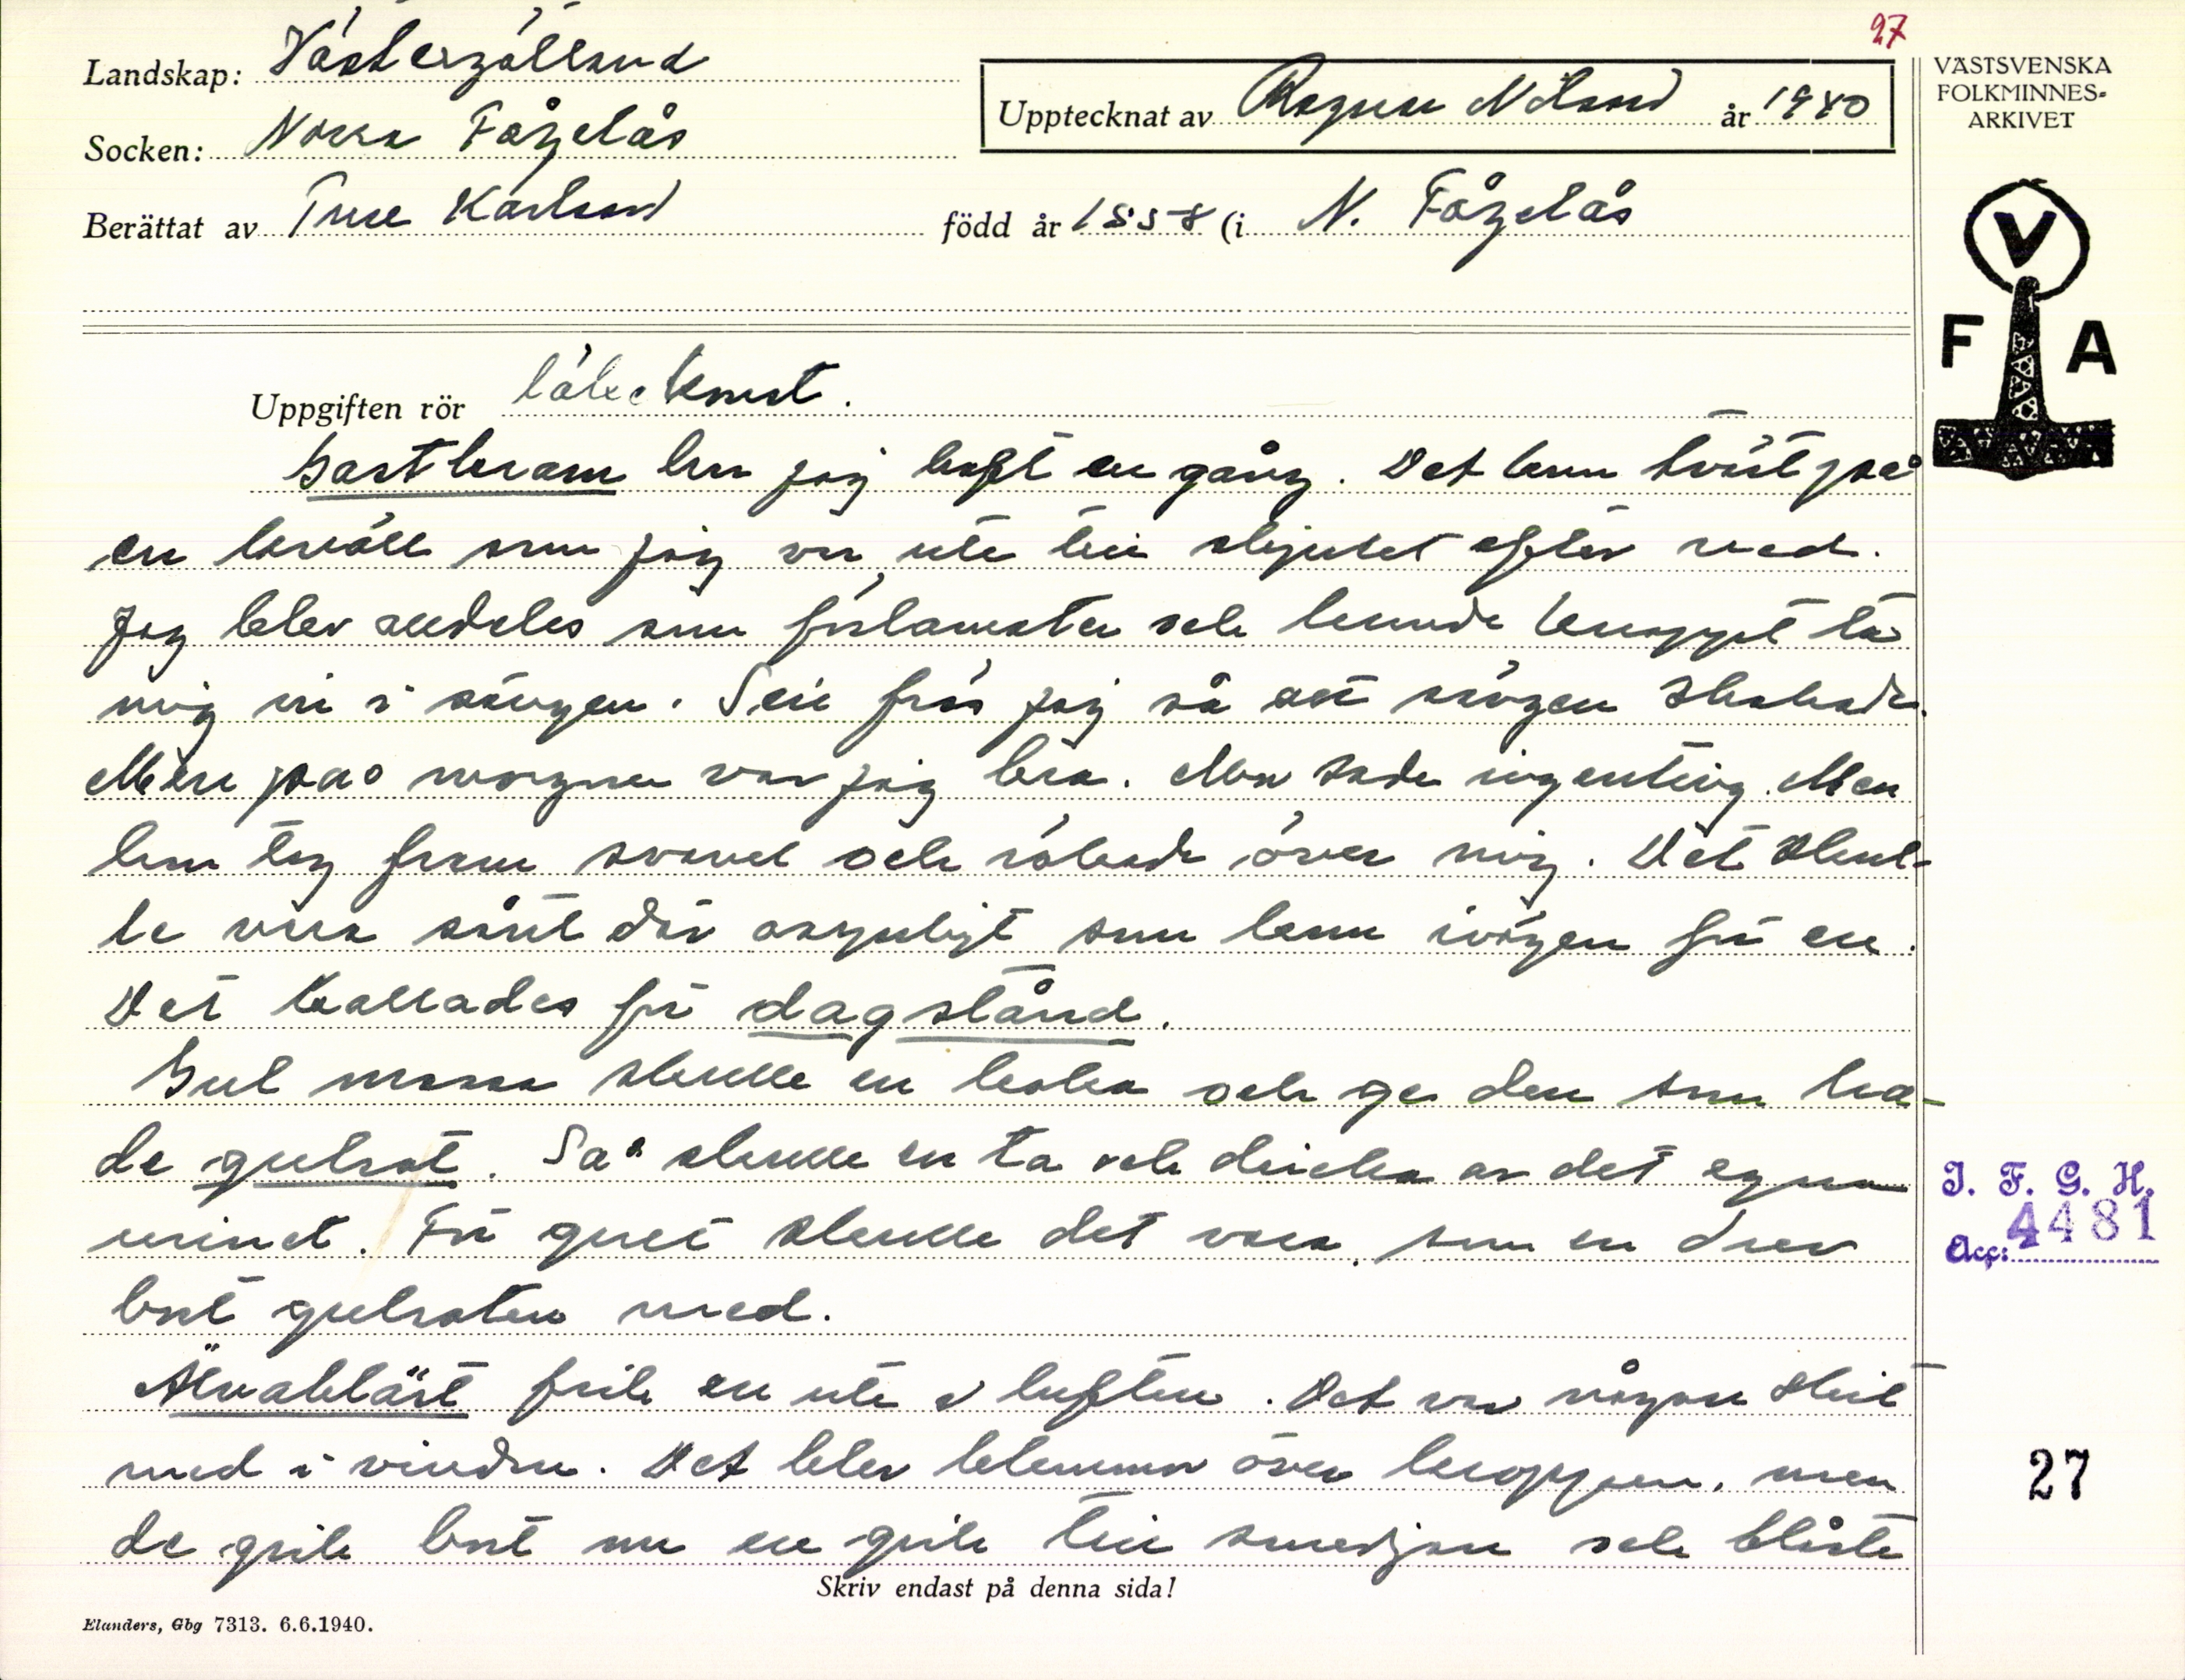 27
Landskap: Västergötland
Socken: Norra Fågelås
Upptecknat av Ragnar Nilsson år 1940
Berättat av Ture Karlsson född år 1858 (i N. Fågelås
VÄSTSVENSKA
FOLKMINNES-
ARKIVET
V
F A
Uppgiften rör läkekonst.
Gastkram har jag haft en gång. Det kom tvärt på
en kväll som jag var ute till skjulet efter ved.
Jag blev alldeles som förlamater och kunde knappt ta
mig in i sängen. Sen frös jag så att sängen skakade.
Men på morgonen var jag bra. Mor sade ingenting. Men
hon tog fram svavel och rökade över mig. Det skul-
le vara sånt där osynligt som kom ivägen för en.
Det kallades för dagstånd.
Gul mossa skulle en koka och ge den som ha-
de gulsot. Så skulle en ta och dricka av det egna
urinet. För gult skulle det vara, som en drev
bort gulsoten med.
Älvabläst fick en ute i luften. Det var någon skit
med i vinden. Det blev blemmor över kroppen, men
de gick bort om en gick till smedjan och blåste
Skriv endast på denna sida!
Elanders, Gbg 7313. 6.6.1940.
I. F. G. H.
Acc: 4481
27